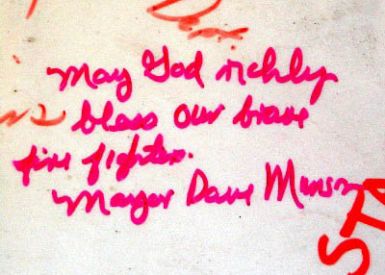 Dept.
May God richly
bless our brave
fire fighters.
Mayor Dave Munson
STA